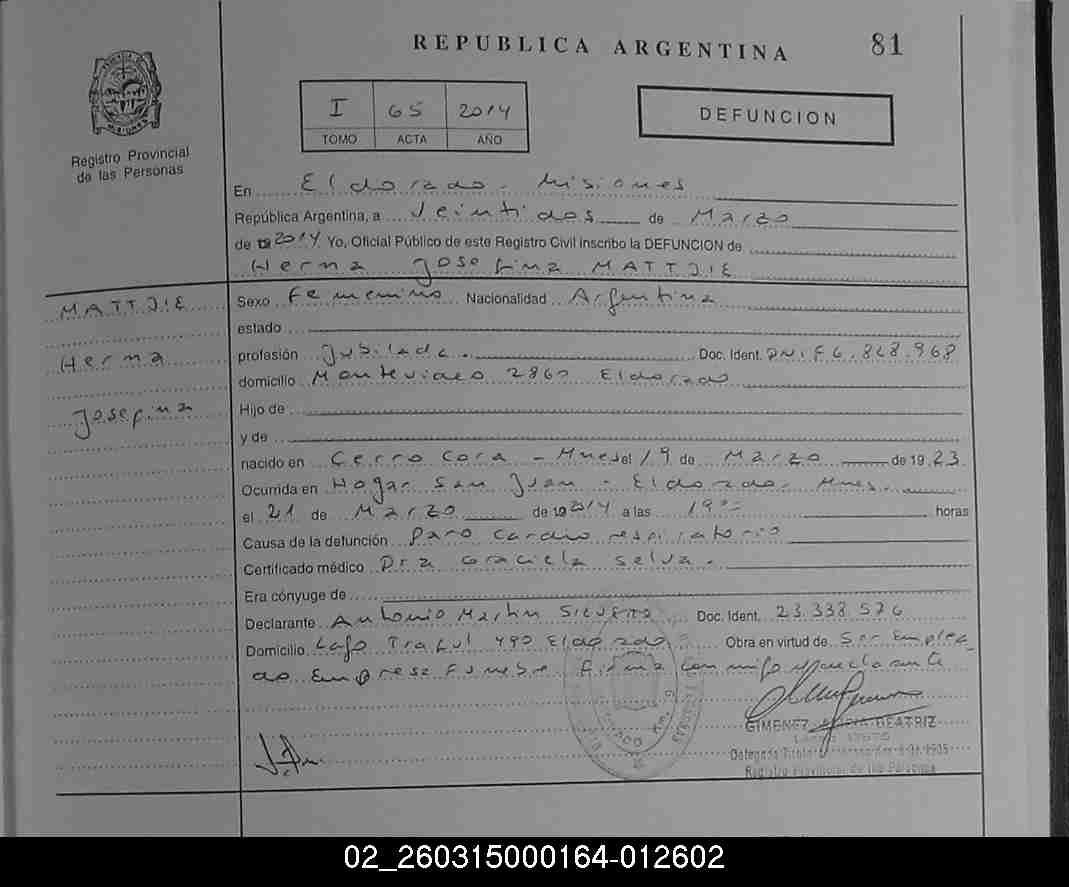 REPUBLICA ARGENTINA
81
MISIONES
Registro Provincial
de las Personas
I 65 2014
TOMO ACTA AÑO
DEFUNCION
En Eldorado - Misiones
República Argentina, a Veintidos de Marzo
de 19 2014 Yo, Oficial Público de este Registro Civil inscribo la DEFUNCION de
Herma Josefina MATTJIE
MATTJIE
Herma
Josefina
Sexo Femenino Nacionalidad Argentina
estado
profesión Jubilada. Doc. Ident. DNI F 6.868.968
domicilio Montevideo 2860 Eldorado
Hijo de
y de
nacido en Cerro Cora - Mnes el 19 de Marzo de 1923
Ocurrida en Hogar San Juan - Eldorado. Mnes.
el 21 de Marzo de 19 2014 a las 19 horas
Causa de la defunción Paro Cardio respiratorio
Certificado médico Dra Graciela Selva.
Era cónyuge de
Declarante Antonio Martin Doc. Ident. 23.338.576
Domicilio 490 Eldorado Obra en virtud de Ser Emplea_
do Empresa Funebre firma conmigo
GIMENEZ BEATRIZ
Delegada Titular
Registro Provincial de las Personas
02_260315000164-012602